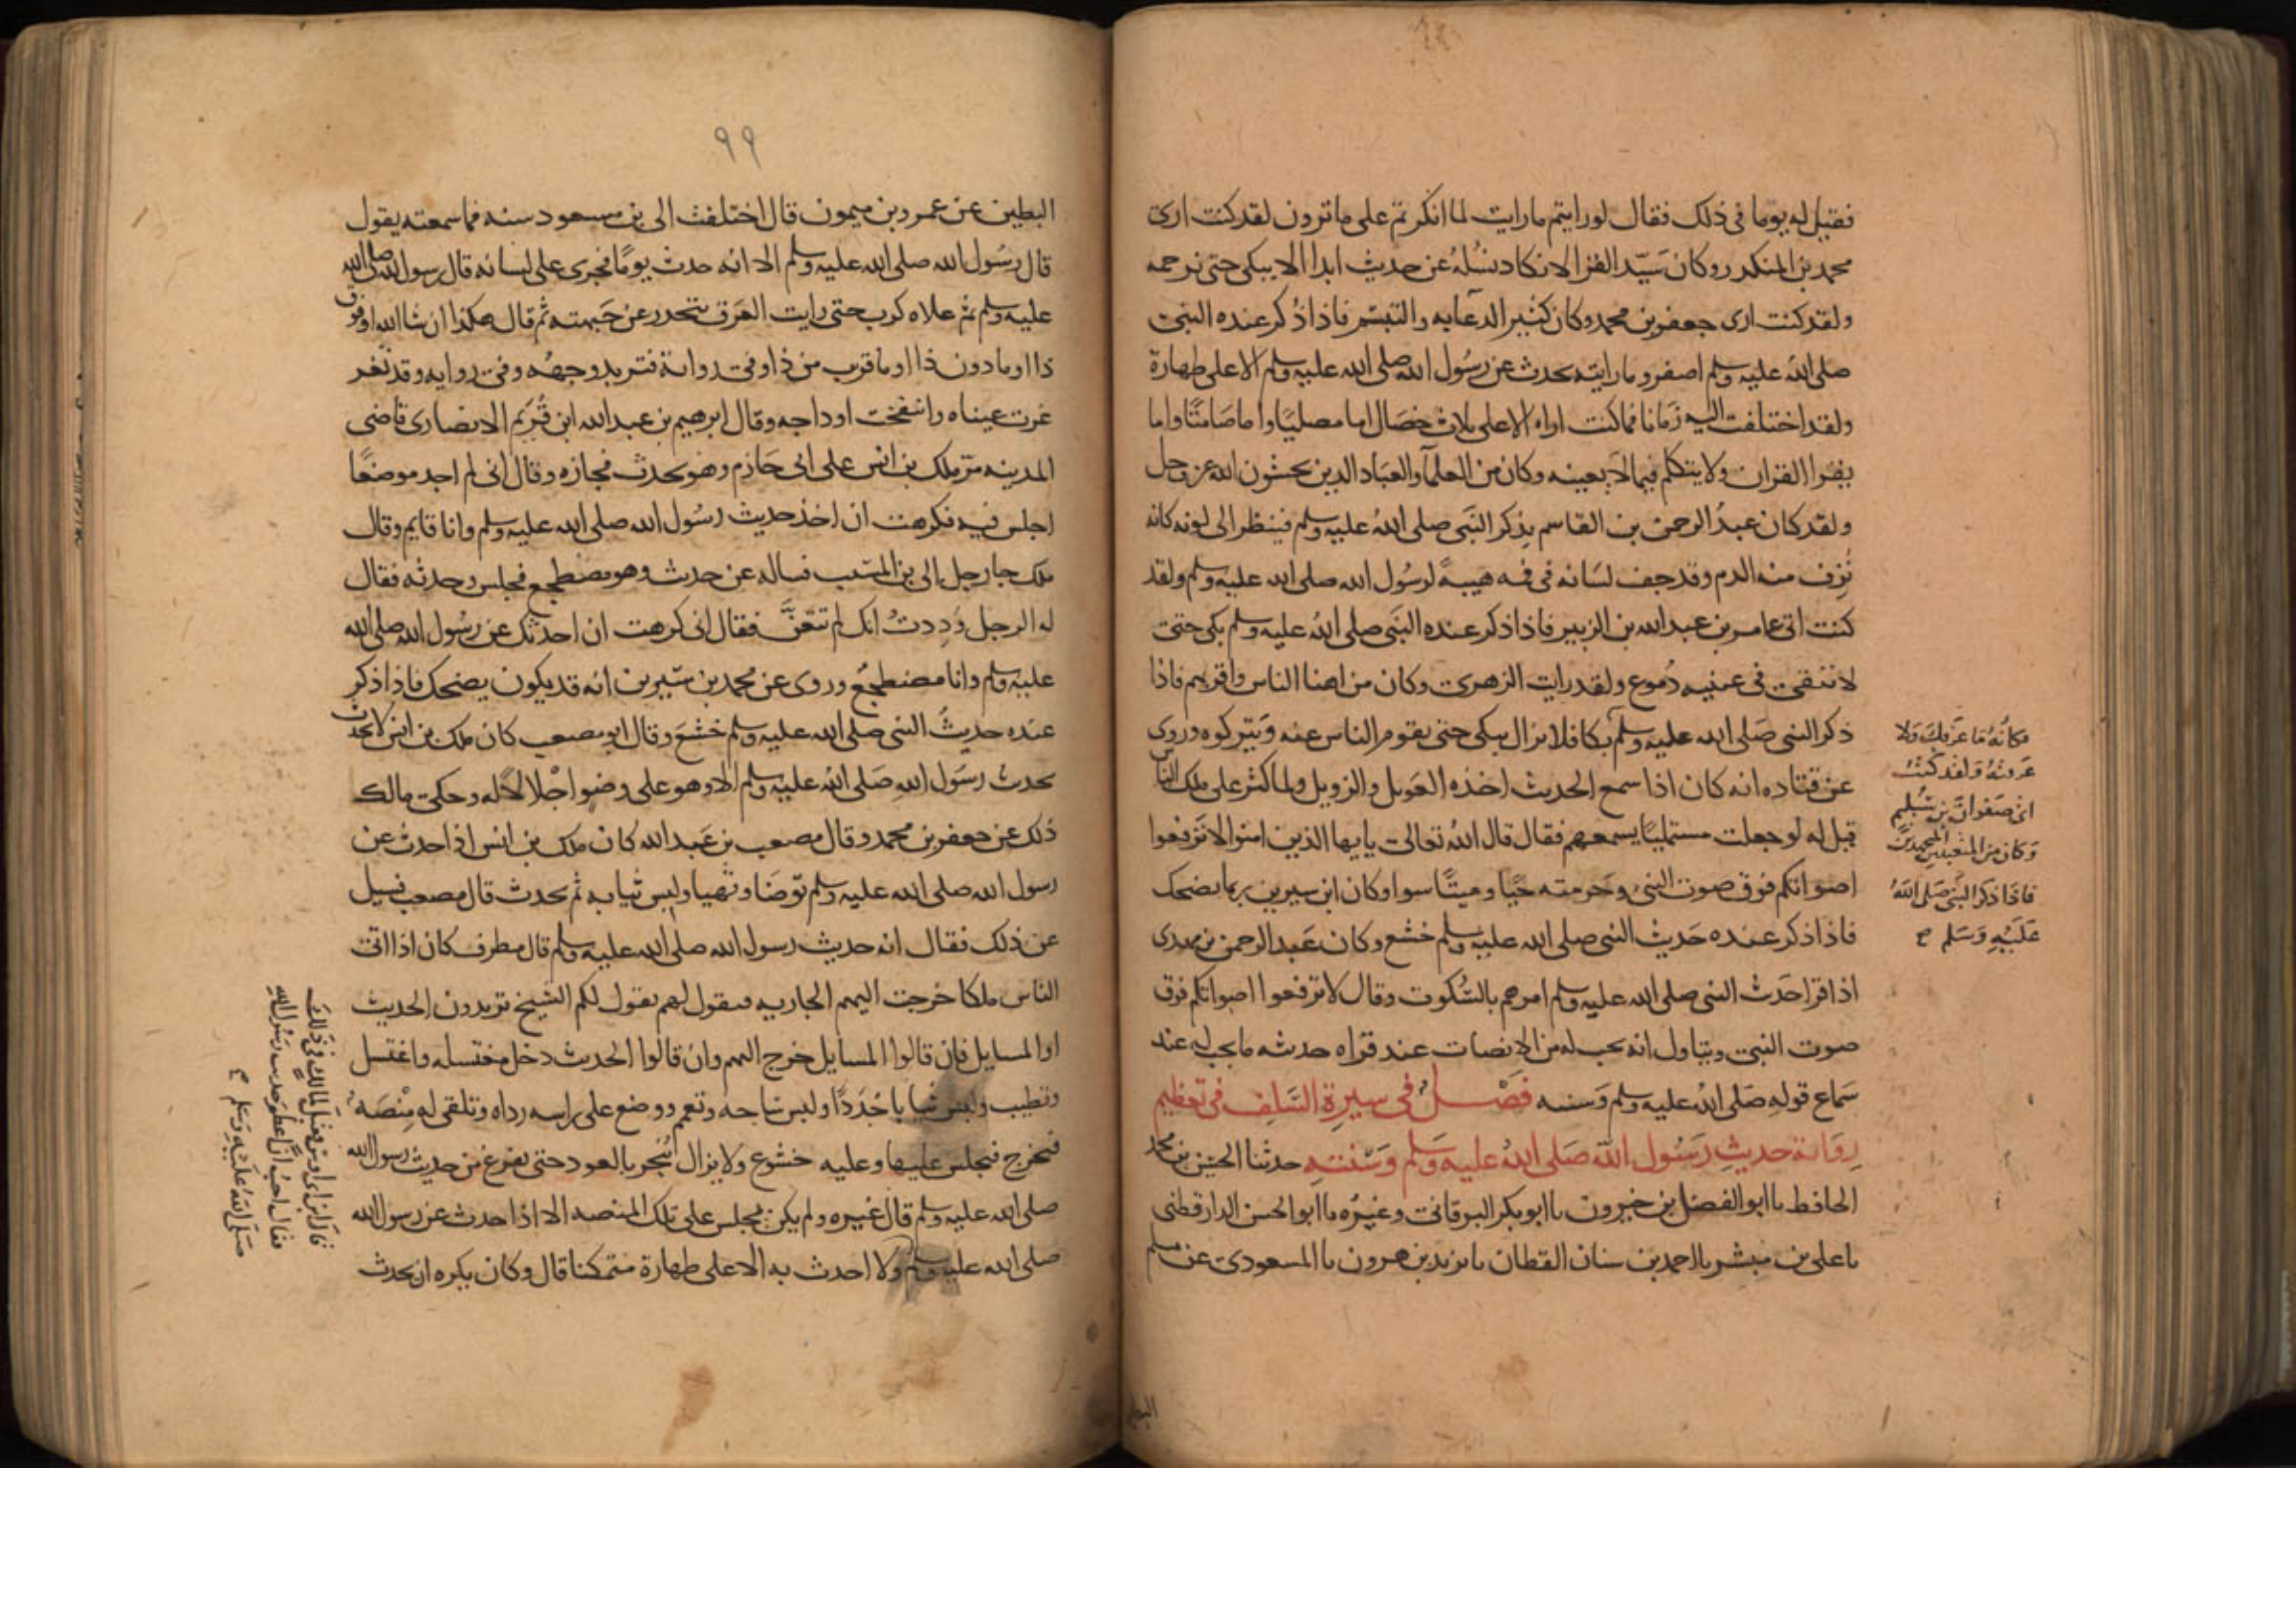 فقيل له يوما في ذلك فقال لو رايتم ما رايت لما انكرتم على ما ترون لقد كنت ارى
محمد بن المنكدر وكان سَيّد القرا لا نكاد نسْلهُ عن حديث ابدا الا يبكي حتى نرحمه
ولقد كنت ارى جعفر بن محمد وكان كثير الدعابه والتبسّم فاذا ذُكر عنده النبي
صلى الله عليه وسلم اصفر وما رايته يحدث عن رسُول الله صلى الله عليه وسلم الا على طهارة
ولقد اختلفت اليه زمَانا فما كنت اراه الا على ثلاث خصَال اما مصليًا واما صَامتًا واما
يقرا القران ولا يتكلم فيما لا يعينه وكان من العلمآ والعبَاد الدين يخشون الله عز وجل
ولقد كان عبدُ الرحمن بن القاسم يذكر النَبي صلى اللهُ عليه وسلم فينظر الى لونه كانه
نُزِف منه الدم وقد جف لسَانه في فه هيبةً لرسُول الله صلى الله عليه وسلم ولقد
كنت اتى عامر بن عبد الله بن الزبير فاذا ذكر عنده النَبي صلى اللهُ عليه وسلم بكى حتى
لا تنقى في عينيه دُموع ولقد رايت الزهري وكان من اهنا الناس واقربهم فاذا
ذكر النبي صَلى الله عليه وسلم بكا فلا يزال يبكي حتى يقوم الناس عنه وَيتركوه وروى
عن قتاده انه كان اذا سمع الحديث اخذه العَويل والزويل ولما كثر على ملك الناس
قيل له لو جعلت مستمليًا يسمعهم فقال قال اللهُ تعالى يايها الذين امنوا لا تَرفعوا
اصواتكم فوق صوت النبي وحَرمته حَيًا وميتًا سوا وكان ابن سيرين ربما يضحك
فاذا ذكر عنده حَديث النبي صلى الله عليه وسلم خشع وكان عَبد الرحمن بن مهدى
اذا قرا حَدث النبي صلى الله عليه وسلم امرهم بالسُّكوت وقال لا ترفعوا اصواتكم فوق
صوت النبي ويتاول انه يجب له من الانصات عند قراه حدثه ما يجب له عند
سَماع قوله صَلى اللهُ عليه وسلم وَسننه فصْـــل في سيرة السَّلف في تعظيم
رِوَاية حديثِ رَسُول اللّه صَلى اللهُ عليه وَسَلم وَسُنته حدثنا الحسَين بن محمد
الحافظ نا ابو الفضل بن خيرون نا ابو بكر البرقاني وغيره نا ابو الحسن الدارقطنى
نا على بن مبشر نا احمد بن سنان القطان نا يزيد بن هرون نا المسعودي عن مسلم
فكانهُ مَا عَرَفكَ وَلا
عَرفتهُ وَلقد كنتُ
اتى صَفوانَ بن سُليم
وَكان من المتعبدين المجتهدينَ
فاذَا ذكر النبَي صَلى اللهُ
عَلَيْهِ وَسَلم صح
٩٩
البطين عن عمرو بن ميمون قال اختلفت الى بن مسعود سنه فما سمعته يقول
قال رسُول الله صلى الله عليه وسلم الا انه حدث يومًا فجرى على لسانه قال رسول الله صلى الله
عليه وسلم ثم علاه كرب حتى رايت العَرق يتحدر عن جَبهته ثم قال هكذا ان شا الله او فوق
ذا او ما دون ذا او ما قرب من ذا وفي رواية فتربد وجههُ وفي روايه وقد تغر
غرت عيناه وانتفخت اوداجه وقال ابرهيم بن عبد الله ابن قُرَيم الانصارى قاضى
المدينه مرّ ملك بن انس على ابى حَازم وهو يحدث فجازه وقال انى لم اجد موضعًا
اجلس فيه فكرهت ان اخذ حديث رسُول الله صلى الله عليه وسلم وانا قايم وقال
ملك جا رجل الى بن المسَيب فساله عن حديث وهو مضطجع فجلس وحدثه فقال
له الرجل وَدِدتُ انك لم تتعَنَّ فقال انى كرهت ان احدثك عن رسُول الله صلى الله
عليه وسلم وانا مضطجعُ وروى عن محمد بن سَيرين انه قد يكون يضحك فاذا ذكر
عنده حديثُ النبي صلى الله عليه وسلم خشعَ وقال ابو مصعب كان ملك بن انس لا يحدث
بحدث رسَول اللهِ صَلى اللهُ عليه وسلم الا وهو على وضوٍ اجْلالًا له وحكى مالك
ذلك عن جعفر بن محمد وقال مصعب بن عَبد الله كان ملك بن انس اذا حدث عن
رسول الله صلى الله عليه وسلم توضَا وتهيا ولبس ثيابه ثم يحدث قال مصعب فسيل
عن ذلك فقال انه حديث رسول الله صلى الله عليه وسلم قال مطرف كان اذا اتى
الناس ملكا خرجت اليهم الجاريه فتقول لهم يقول لكم الشيخ تريدون الحديث
او المسايل فان قالوا المسايل خرج اليهم وان قالوا الحديث دخل مغتسله واغتسل
وتطيب ولبس ثيابا جُدَدًا ولبس ساجه وتعمم ووضع على راسه رداه وتلقى له مِنْصَه
فيخرج فيجلس عليها وعليه خشوع ولا يزال يُبخر بالعود حتى يفرغ من حديث رسول الله
صلى الله عليه وسلم قال غيره ولم يكن يجلس على تلك المنصه الا اذا حدث عن رسول الله
صلى الله عليه وسلم ولا احدث به الا على طهارة متمكنا قال وكان يكره ان يحدث
قال ابن ابى اويس فقيل لمالك في ذلكَ
فقال احبُ ان اعظم حديث رَسُول اللهِ
صَلى اللهُ عَلَيْهِ وَسَلم صح